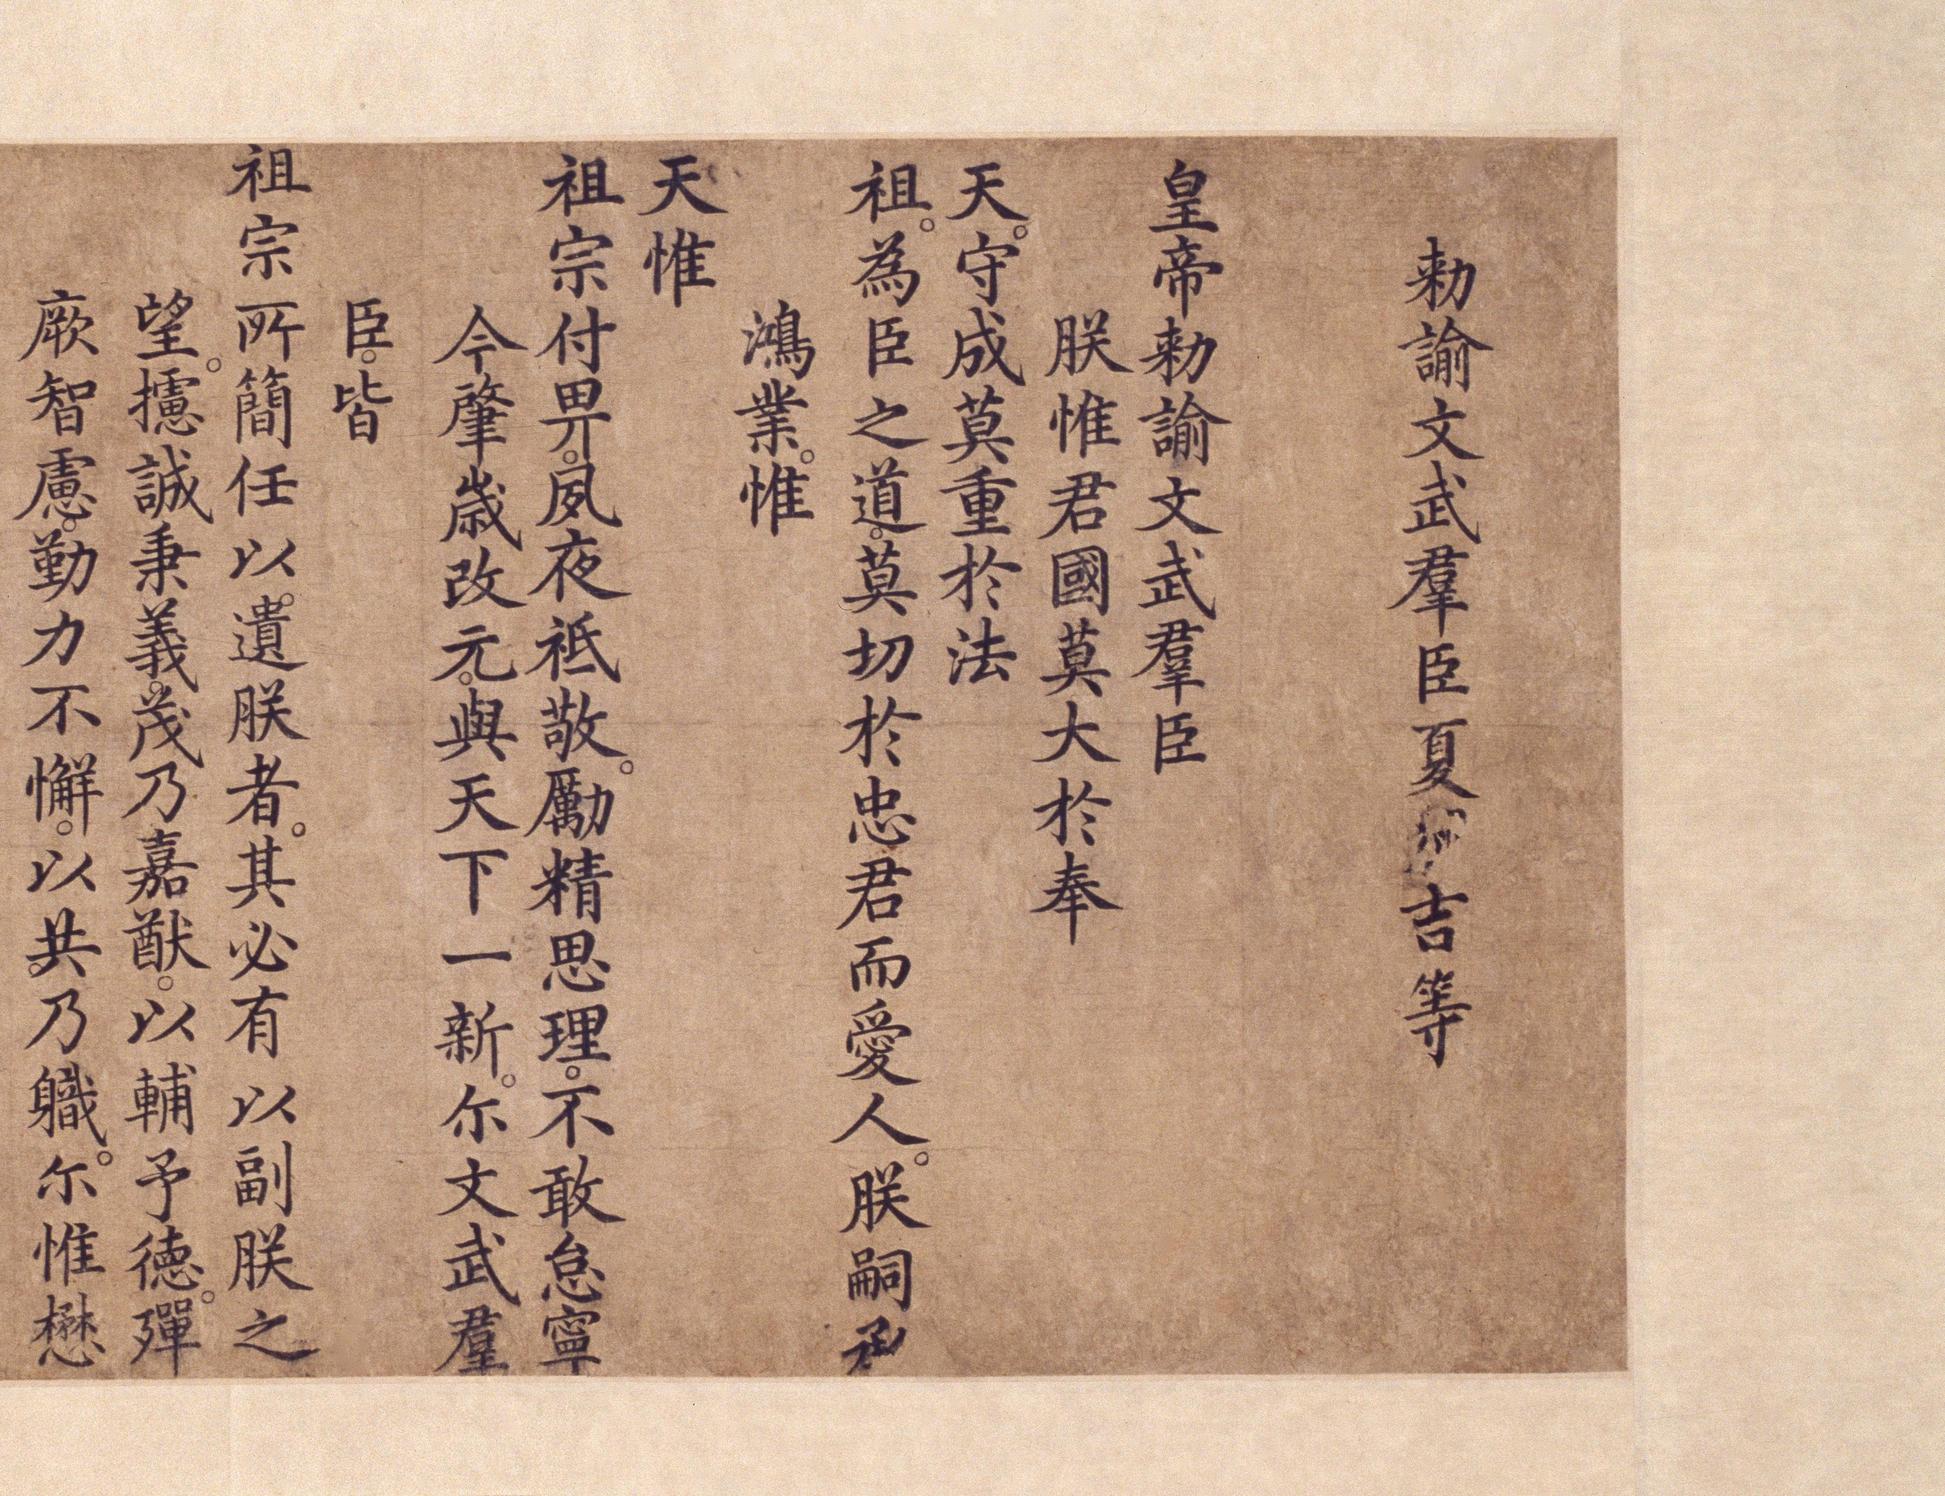 勑諭文武羣臣夏吉等
皇帝勑諭文武羣臣
朕惟君國莫大於奉
天。守成莫重於法
祖。為臣之道。莫切於忠君而愛人。朕嗣承
鴻業。惟
天惟
祖宗付畀。夙夜祗敬。勵精思理。不敢怠寧
今肇歲改元。與天下一新。尔文武羣
臣。皆
祖宗所簡任以。遺朕者。其必有以副朕之
望。攄誠秉義。茂乃嘉猷。以輔予德。殫
厥智慮。勤力不懈。以共乃職。尔惟懋